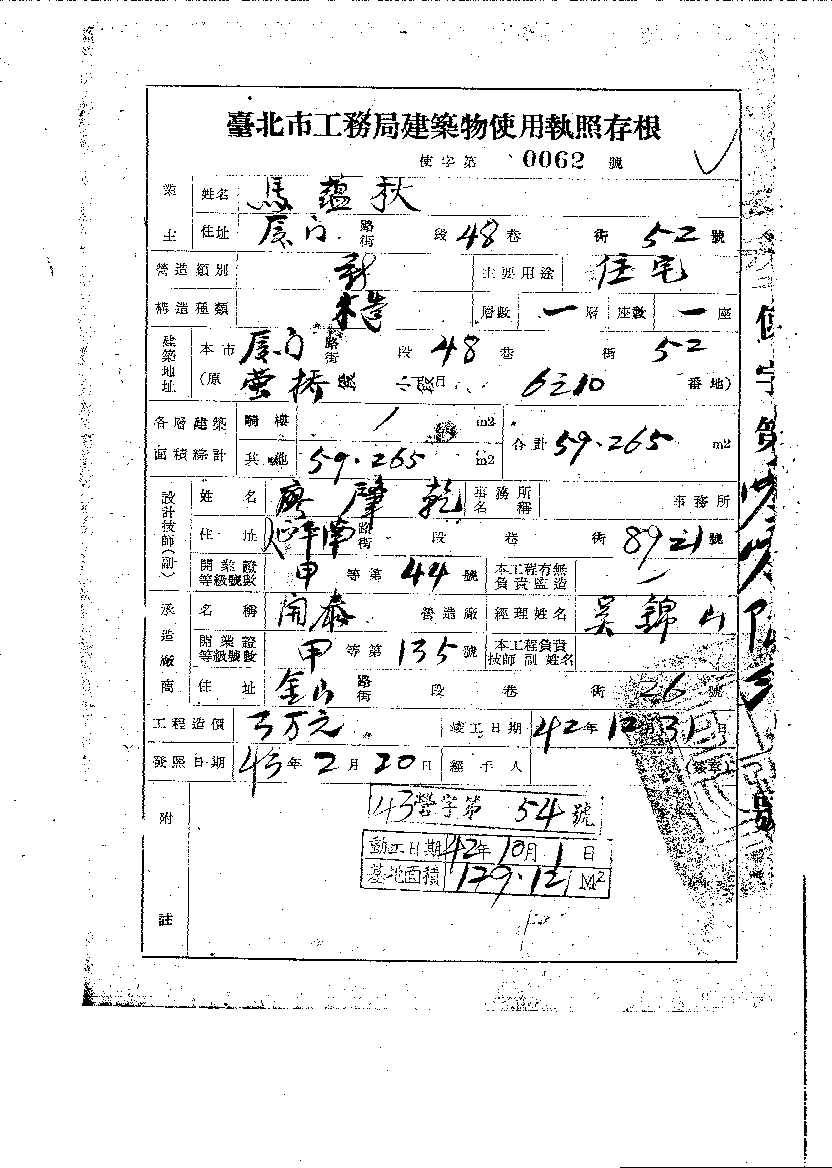 臺北市工務局建築物使用執照存根
使字第 0062 號
業主 姓名 馬蘊秋
住址 厦门 路街 段 48 巷 衖 52 號
營造類別 新 主要用途 住宅
構造種類 木造 層數 一 層 座數 一 座
建築地址 本市 厦门 路街 段 48 巷 衖 52
(原 螢橋 段 6之10 番地)
各層建築面積綜計 騎樓 / m2 合計 59.265 m2
其他 59.265 m2
設計技師(副) 姓名 廖肇乾 事務所名稱 事務所
住址 延平南 路街 段 巷 衖 89之1 號
開業證等級號數 甲 等第 44 號 本工程有無負責監造 /
承造廠商 名稱 開泰 營造廠 經理姓名 吴錦山
開業證等級號數 甲 等第 135 號 本工程負責技師副姓名
住址 金山 路街 段 巷 衖 26 號
工程造價 3万元 竣工日期 42年12月31日
發照日期 43年2月20日 經手人 (簽章)
附註
43營字第 54 號
動工日期 42年10月1日
基地面積 129.121 M²
使字第
號